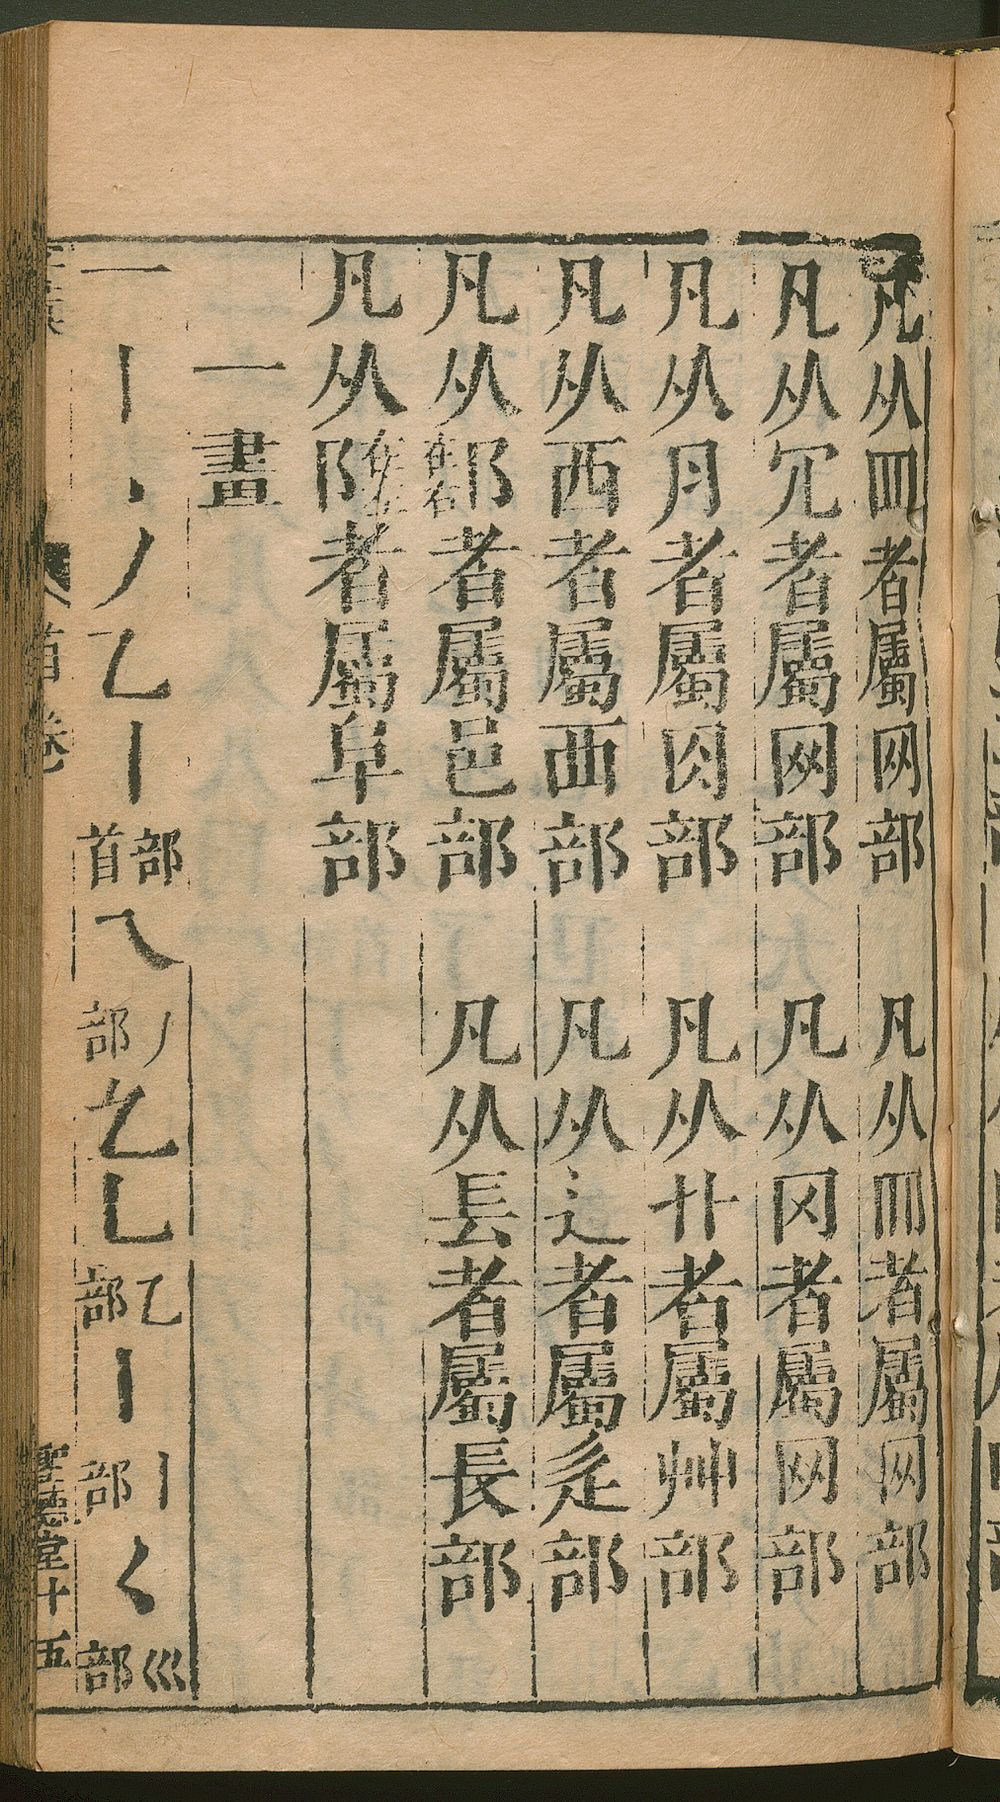 凡从罒者屬网部　凡从𦉪者屬网部
凡从冗者屬网部　凡从冈者屬网部
凡从月者屬肉部　凡从卄者屬艸部
凡从西者屬襾部　凡从辶者屬辵部
凡从阝在右者屬邑部　凡从镸者屬長部
凡从阝在左者屬阜部
一畫
一丨丶丿乙亅部首乁丿部𠂆乚乙部丨亅部𡿨巛部
首卷
聖德堂十五